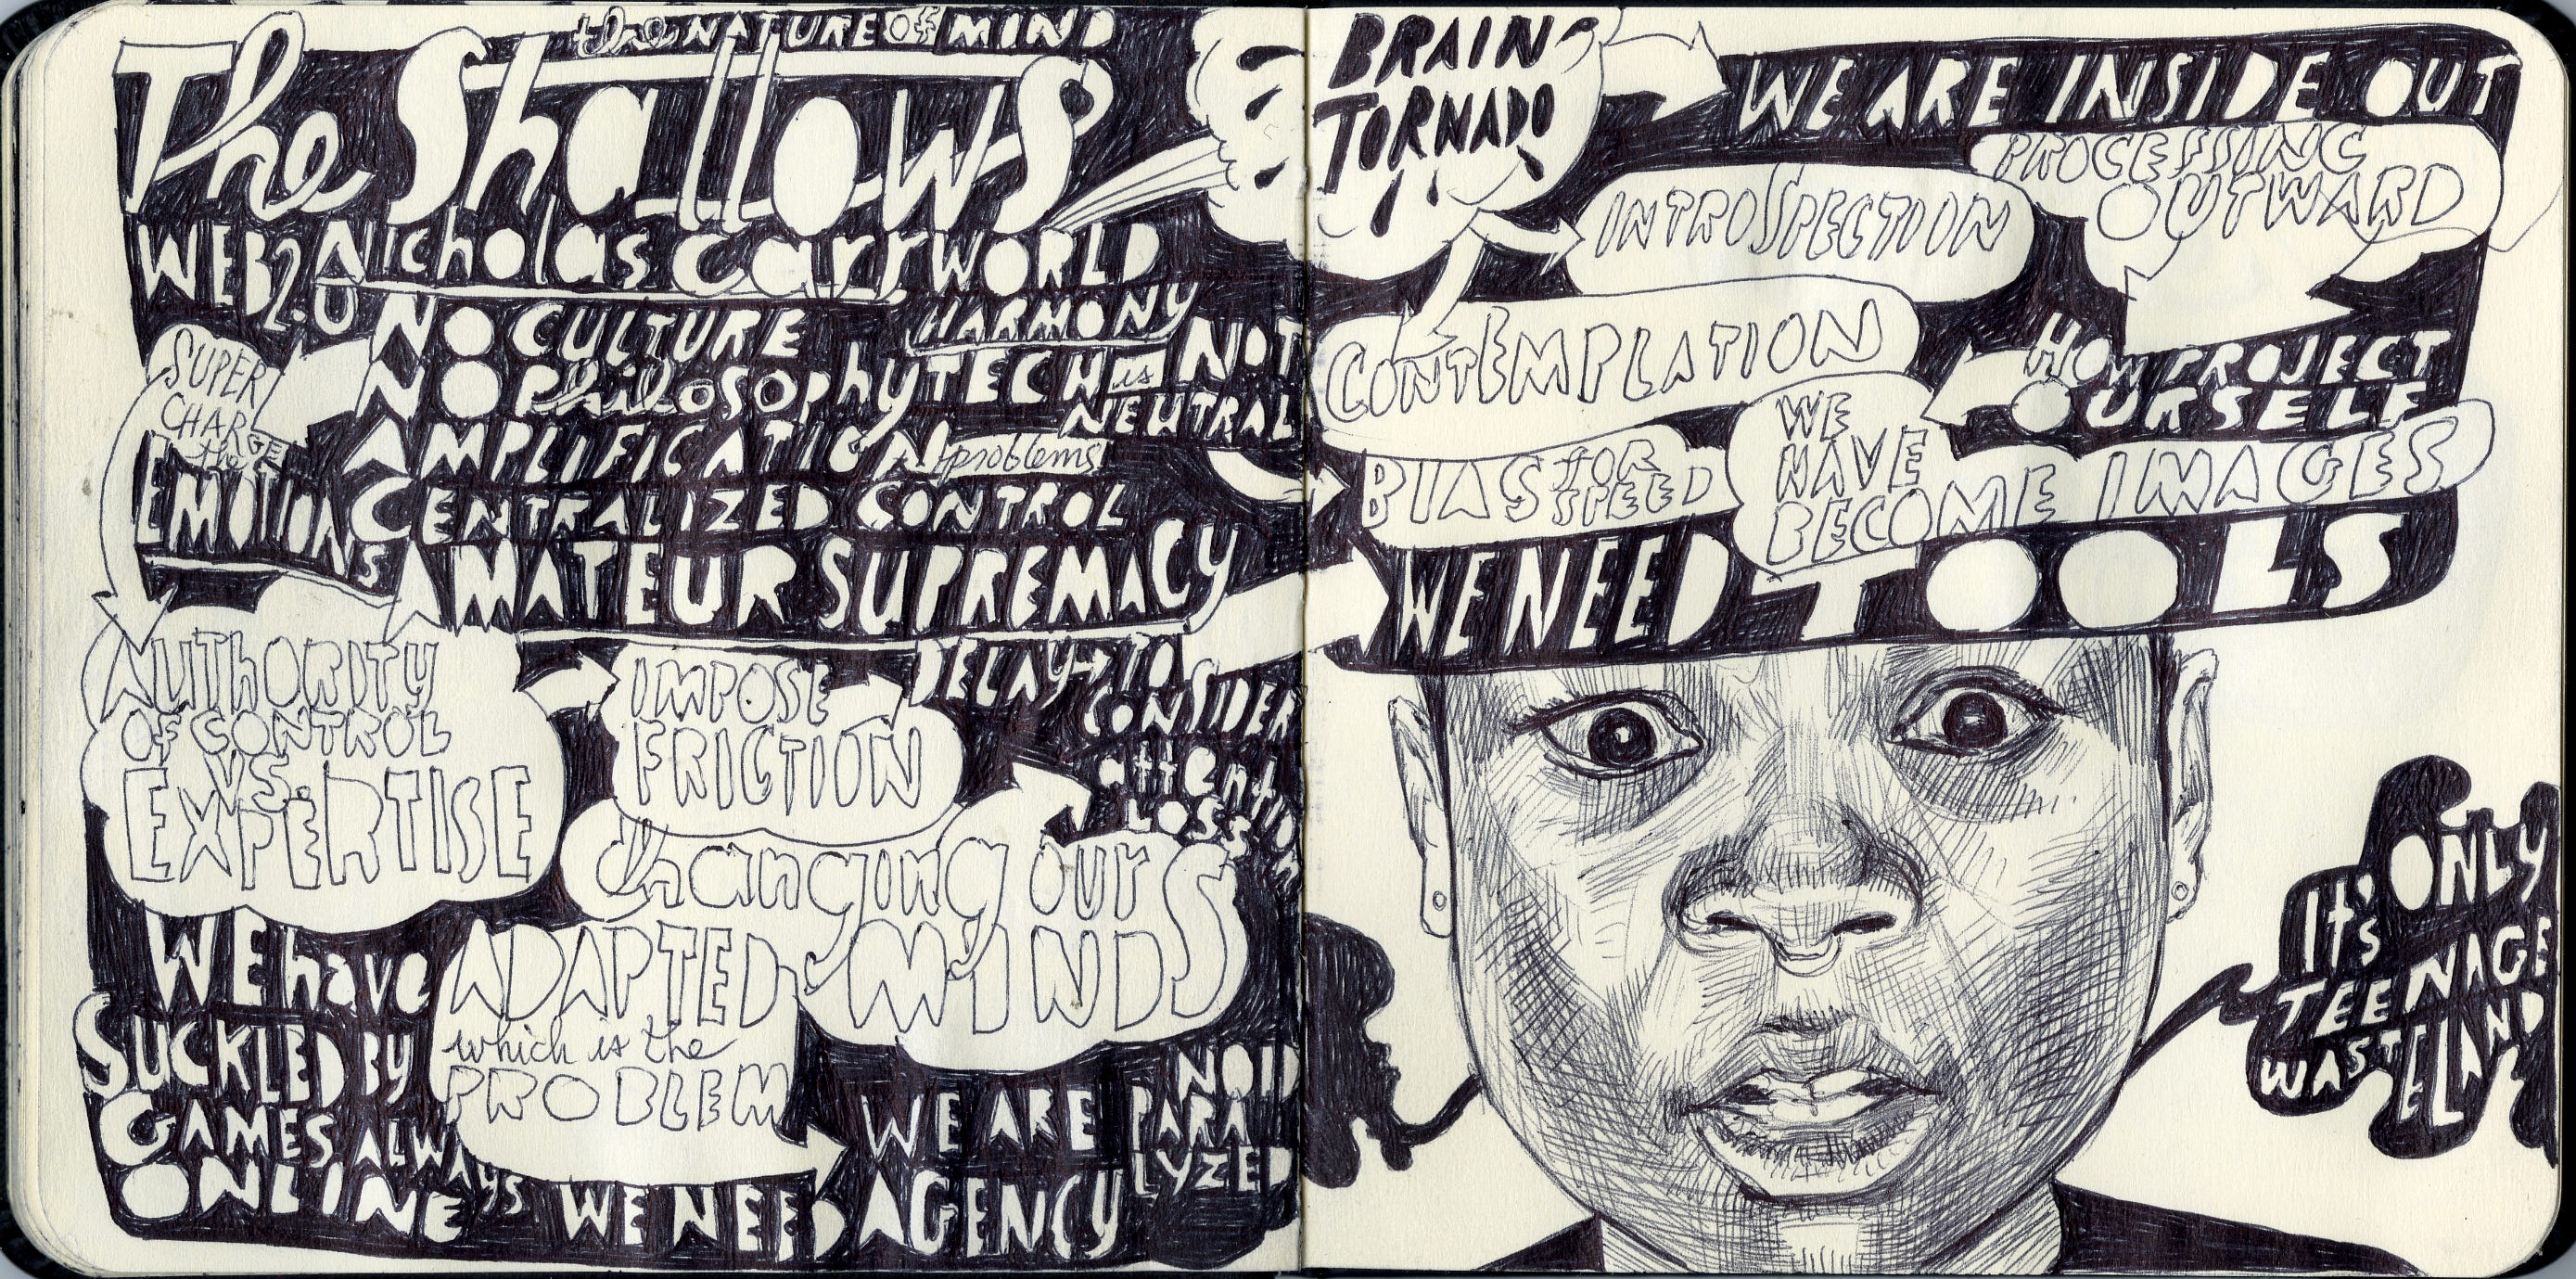 the NATURE OF MIND
The Shallows
WEB 2.0 Nicholas Carr WORLD
HARMONY
NO CULTURE
NO PhilosophY TECH is NOT
NEUTRAL
SUPER
CHARGE
the
EMOTIONS
AMPLIFICATION problems
CENTRALIZED CONTROL
AMATEUR SUPREMACY
AUTHORITY
OF CONTROL
VS.
EXPERTISE
IMPOSE
FRICTION
DELAY TO
CONSIDER
attention
LOSS
changing our
MINDS
WE have
SUCKLED BY
GAMES ALWAYS
ONLINE
ADAPTED
which is the
PROBLEM
WE NEED AGENCY
WE ARE
PARANOID
PARALYZED
BRAIN
TORNADO
WE ARE INSIDE OUT
PROCESSING
OUTWARD
INTROSPECTION
CONTEMPLATION
HOW PROJECT
OURSELF
BIAS FOR
SPEED
WE
HAVE
BECOME IMAGES
WE NEED TOOLS
It's ONLY
TEENAGE
WASTELAND